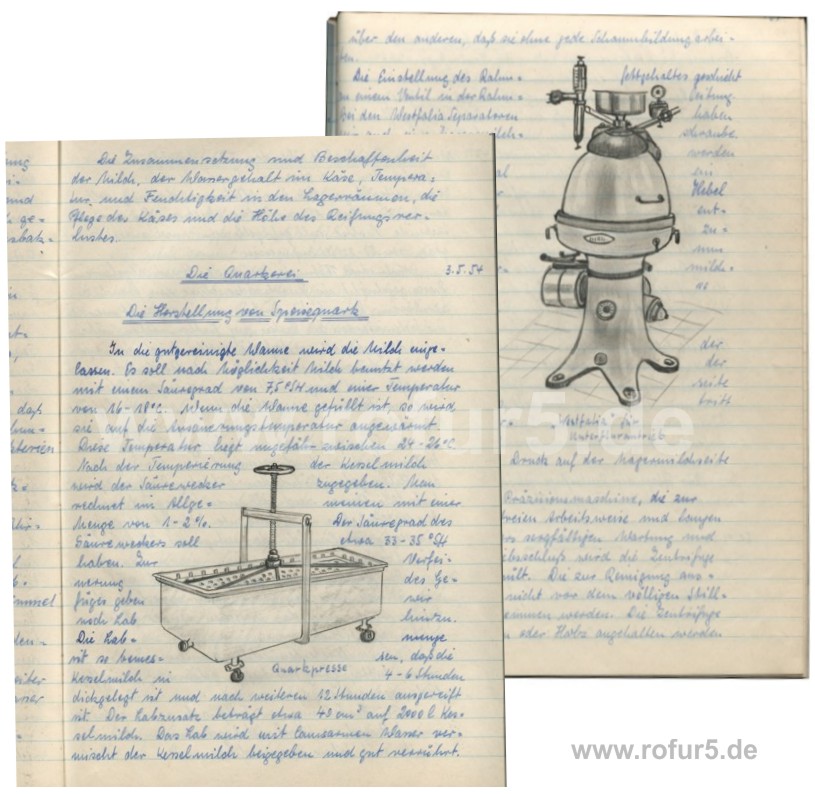 über den anderen, daß sie ohne jede Schaumbildung arbei-
ten.
Die Einstellung des Rahm- fettgehaltes geschieht
an einem Ventil in der Rahm- leitung
Bei den Westfalia Separatoren haben
schraube
werden
ein
Hebel
ent-
zu-
nun
milch-
der
der
seite
tritt
"Westfalia" für
Unterflurantrieb
Druck auf der Magermilchseite
Präzisionsmaschine, die zur
freien Arbeitsweise und langen
sorgfältigen Wartung und
wird die Zentrifuge
Die zur Reinigung aus-
nicht vor dem völligen Still-
kommen werden. Die Zentrifuge
oder Holz angehalten werden
Die Zusammensetzung und Beschaffenheit
der Milch, der Wassergehalt im Käse, Tempera-
tur und Feuchtigkeit in den Lagerräumen, die
Pflege des Käses und die Höhe des Reifungsver-
lustes.
Die Quarkerei 3.5.54
Die Herstellung von Speisequark
In die gutgereinigte Wanne wird die Milch einge-
lassen. Es soll nach Möglichkeit Milch benutzt werden
mit einem Säuregrad von 7,5 °SH und einer Temperatur
von 16-18°C. Wenn die Wanne gefüllt ist, so wird
sie auf die Ansäuerungstemperatur angewärmt.
Diese Temperatur liegt ungefähr zwischen 24-26°C
Nach der Temperierung der Kesselmilch
wird der Säurewecker zugegeben. Man
rechnet im Allge- meinen mit einer
Menge von 1-2%. Der Säuregrad des
Säureweckers soll etwa 33-35 °SH
haben. Zur Verfei-
nerung des Ge-
füges geben wir
noch Lab hinzu.
Die Lab- menge
ist so bemes- sen, daß die
Kesselmilch in 4-6 Stunden
Quarkpresse
dickgelegt ist und nach weiteren 12 Stunden ausgereift
ist. Der Labzusatz beträgt etwa 40 cm³ auf 2000 l Kes-
selmilch. Das Lab wird mit lauwarmen Wasser ver-
mischt der Kesselmilch beigegeben und gut verrührt.
rofur5.de
www.rofur5.de